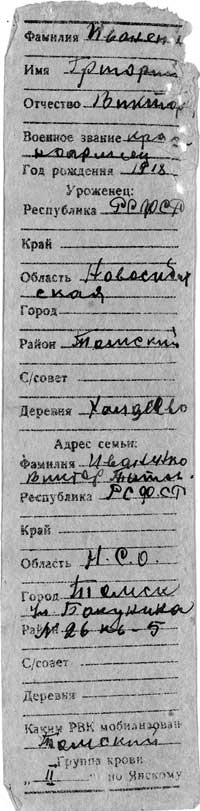 Фамилия Иванен
Имя Григорий
Отчество Виктор
Военное звание крас
ноармеец
Год рождения 1918
Уроженец:
Республика РСФСР
Край
Область Новосибир
ская
Город
Район Томский
С/совет
Деревня Халдеево
Адрес семьи:
Фамилия Иваненко
Виктор
Республика РСФСР
Край
Область Н.С.О.
Город Томск
ул. Бакунина
Район №26 кв-5
С/совет
Деревня
Каким РВК мобилизован
Томский
Группа крови
„ II " по Янскому